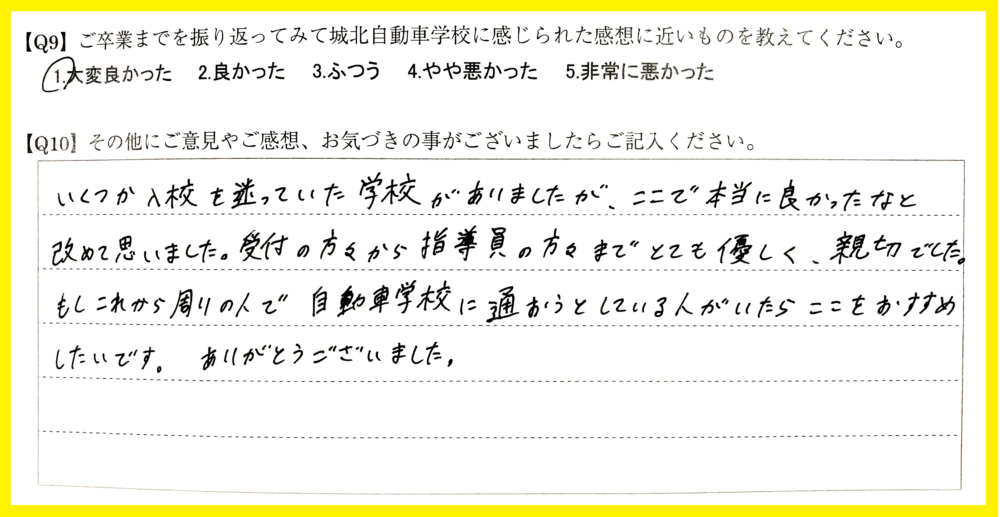 【Q9】ご卒業までを振り返ってみて城北自動車学校に感じられた感想に近いものを教えてください。
1.大変良かった 2.良かった 3.ふつう 4.やや悪かった 5.非常に悪かった
【Q10】その他にご意見やご感想、お気づきの事がございましたらご記入ください。
いくつか入校を迷っていた学校がありましたが、ここで本当に良かったなと
改めて思いました。受付の方々から指導員の方々までとても優しく、親切でした。
もしこれから周りの人で自動車学校に通おうとしている人がいたらここをおすすめ
したいです。ありがとうございました。